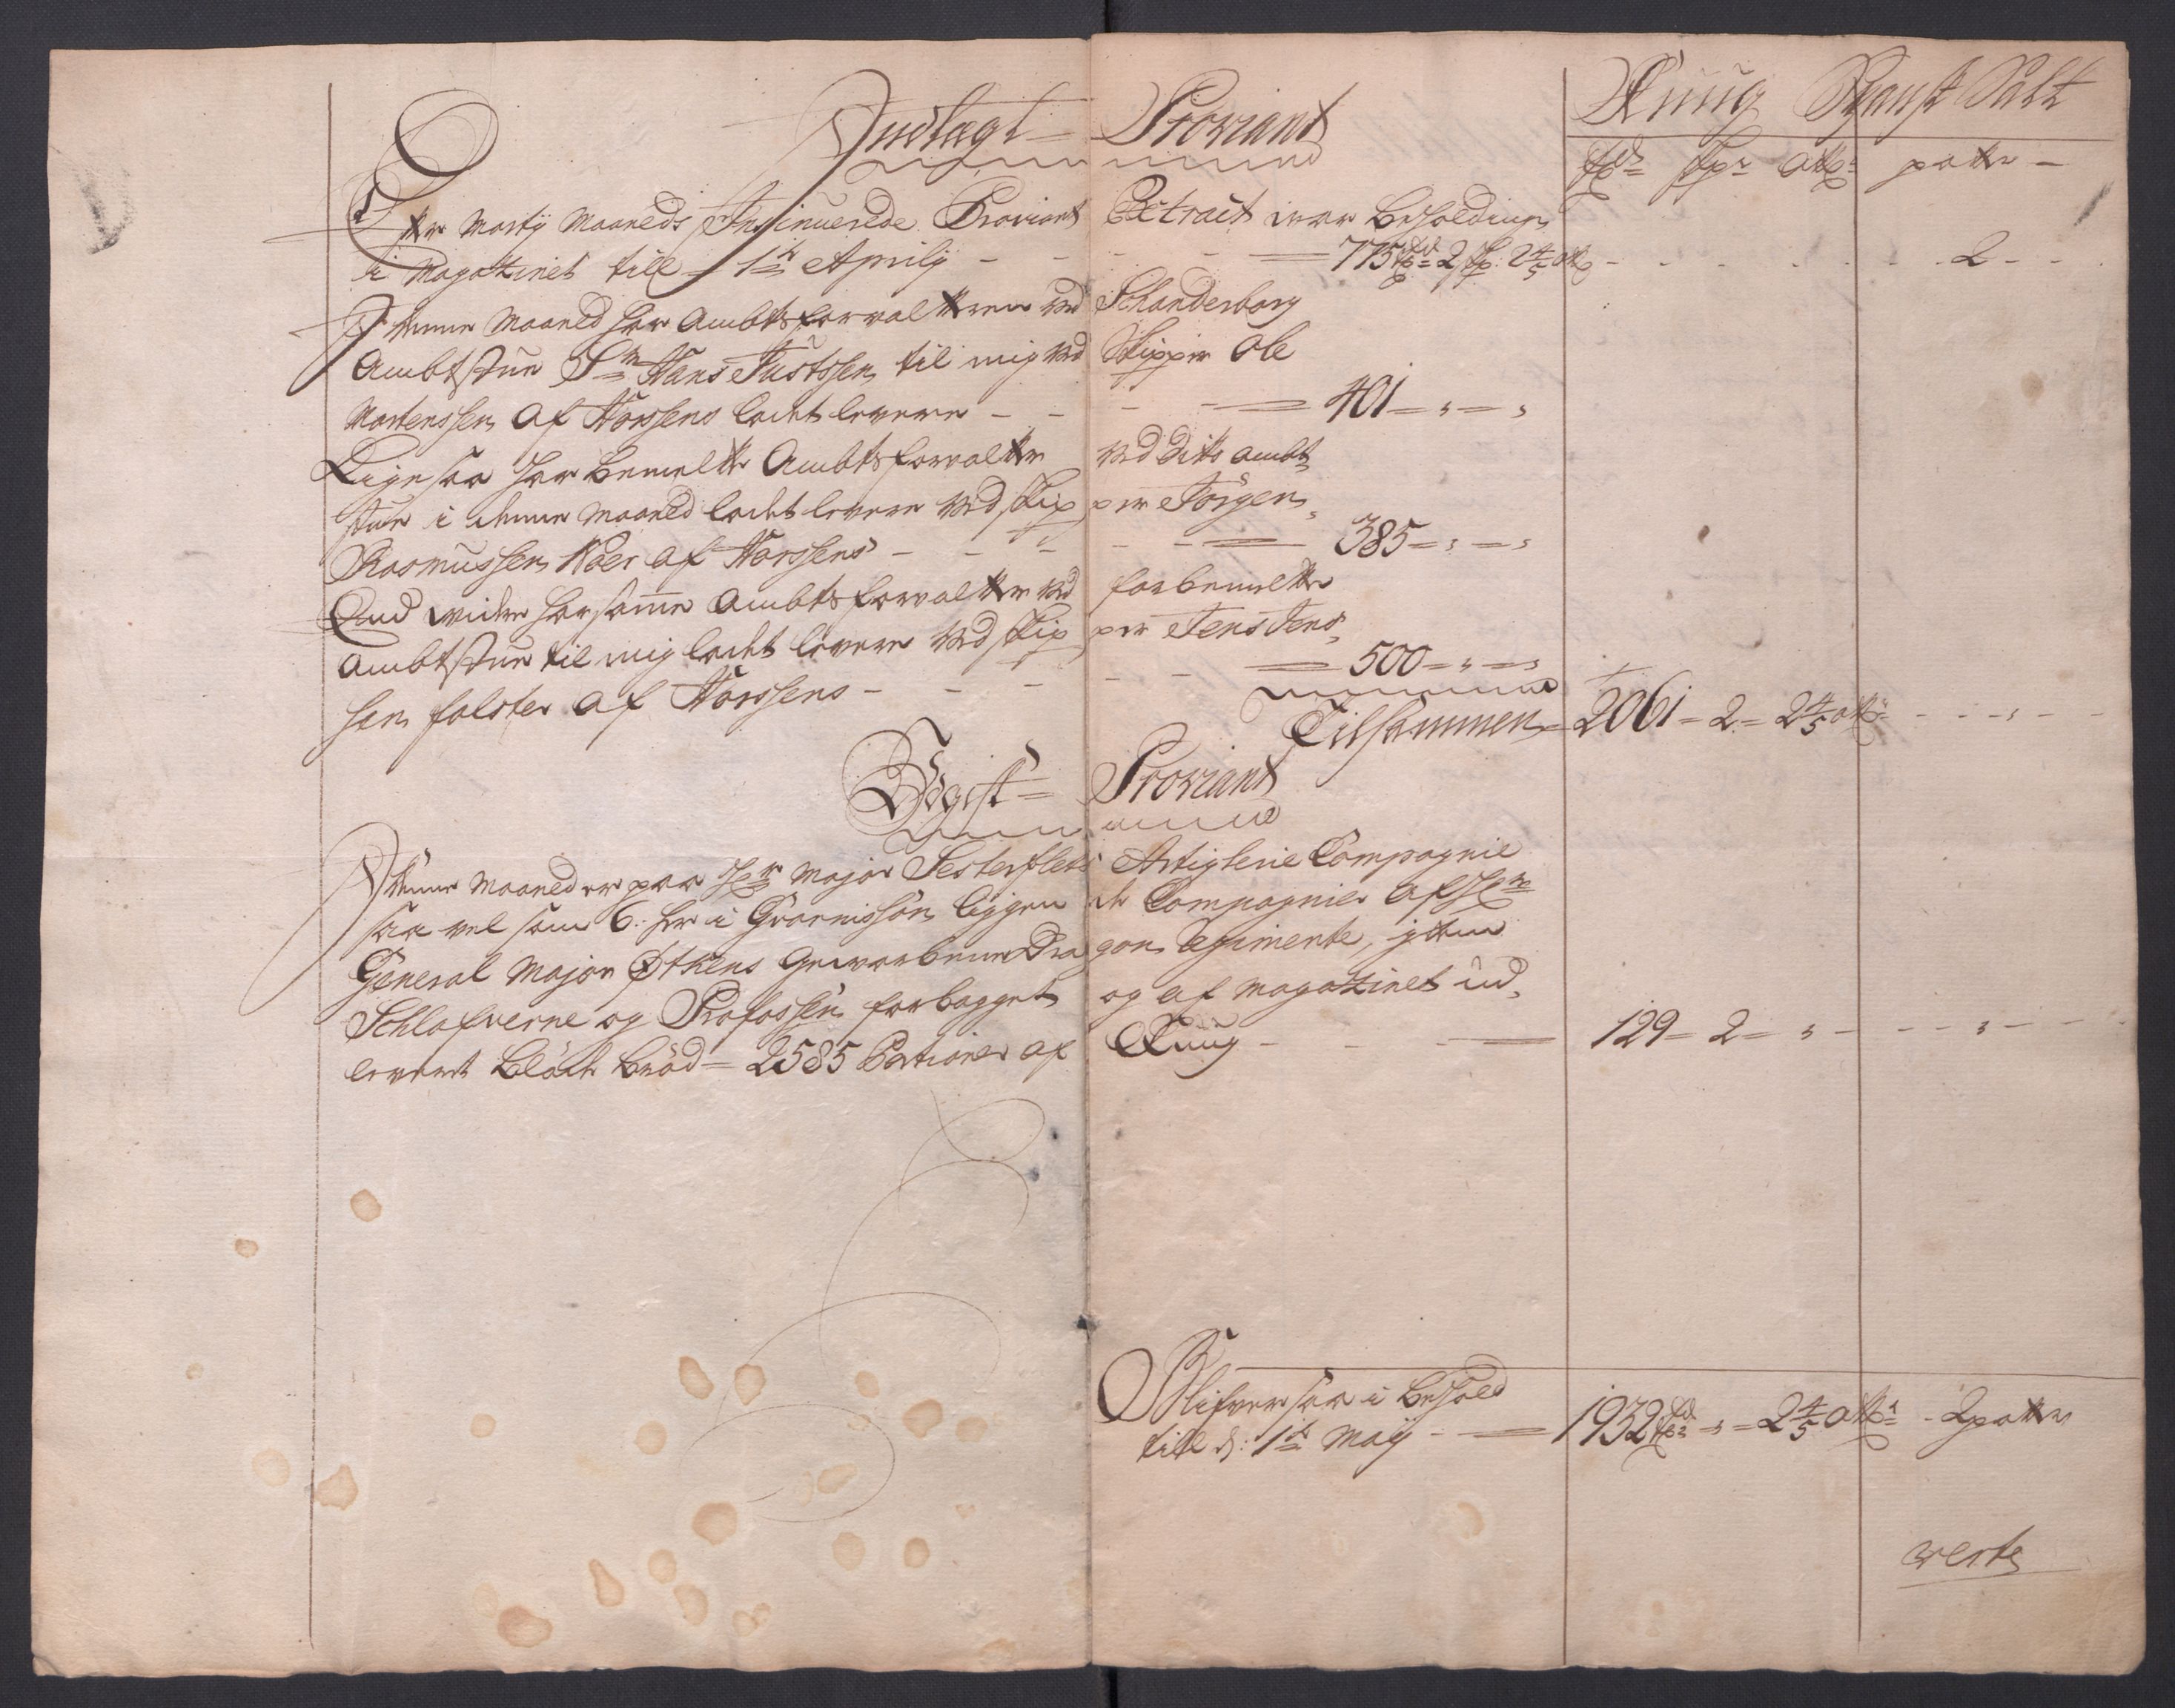 Ruug Spansk Salt
Indtagt = Proviant
tdr skpr otk: potter
Efter Marty Maaneds Insinuerede Proviant Extract war Beholdingen
i Magazinet till 1te Aprily - - - - 775 tdr 2 skp: 2 4/5 otk - - - 2 - -
J denne Maaned har Ambtsforvalteren ved Schanderborg
Ambtstue Sr Hans Justssen til mig ved Skipper Ole
Mortenssen af Horssens ladet levere - - - - 401 = " = "
Ligesaa har bemelte Ambtsforvalter ved dito Ambt
stue i denne Maaned ladet levere ved Skipper Jörgen
Rasmussen Kaer af Horssens - - - - 385 = " = "
End widere har samme Ambtsforvalter ved forbemelte
Ambtstue til mig ladet levere ved Skipper Jens Jens
sen falster af Horssens - - - - 500 = " = "
Tilsammen = 2061 = 2 = 2 4/5 otk - - - " - -
Udgift = Proviant
J denne Maaned er paa Hr Major Sesterflets Artiglerie Compagnie
saa vel som 6. her i Guarnisson liggende Compagnier af Hr
General Major Øtkens Gevorbene Dragon Regimente, jtem
Schlafverne og Profossen forbagget og af Magazinet ud
leveret Blöde Bröd = 2585 Portioner af Ruug - - - 129 = 2 = " - - - " - - -
Blifver saa i Behold
till d: 1te Maij - - 1932 tdr = " = 2 4/5 otk - 2 potter
verte